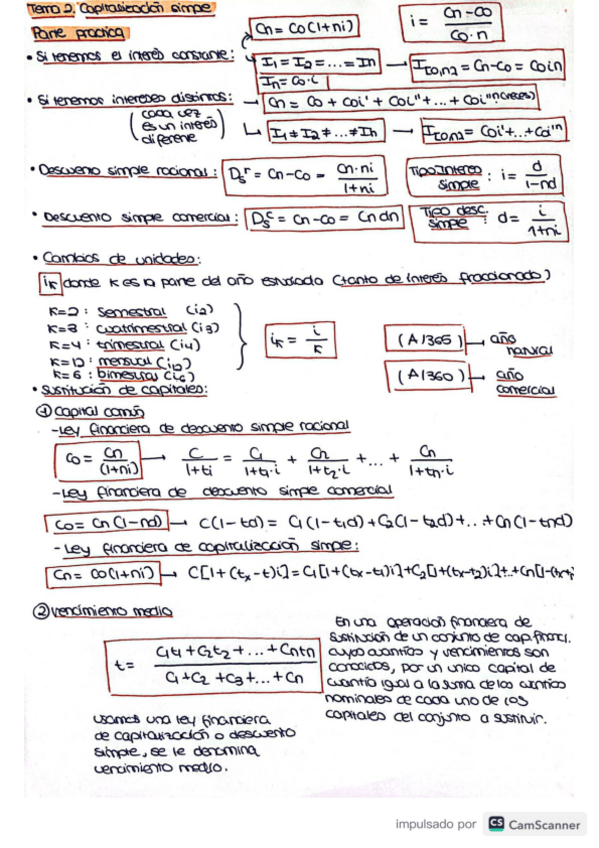 Tema 2. Capitalización simple
Parte practica
Cn = Co(1+ni)
i = Cn - Co / Co · n
• Si tenemos el interés constante:
I1 = I2 = ... = In → I(o,n) = Cn - Co = Coin
In = Co · i
• Si tenemos intereses distintos: → Cn = Co + Coi' + Coi'' + ... + Coi''
(cada vez es un interés diferente)
I1 ≠ I2 ≠ ... ≠ In → I(o,n) = Coi' + .. + Coi'n
• Descuento simple racional: Dsr = Cn - Co = Cn · ni / 1+ni
Tipo Interés simple : i = d / 1-nd
• Descuento simple comercial: Dsc = Cn - Co = Cn dn
Tipo desc. simple : d = i / 1+ni
• Cambios de unidades:
ik donde k es la parte del año estudiada (tanto de interés fraccionado)
K=2 : Semestral (i2)
K=3 : cuatrimestral (i3)
K=4 : trimestral (i4)
K=12 : mensual (i12)
K=6 : bimestral (i6)
ik = i / k
(A/365) → año natural
(A/360) → año comercial
• Sustitución de capitales:
① Capital común
- Ley financiera de descuento simple racional
Co = Cn / (1+ni) → C / 1+ti = C1 / 1+t1·i + C2 / 1+t2·i + ... + Cn / 1+tn·i
- Ley financiera de descuento simple comercial
Co = Cn (1-nd) → C(1-td) = C1(1-t1d) + C2(1-t2d) + .. + Cn(1-tnd)
- Ley financiera de capitalización simple:
Cn = Co(1+ni) → C[1+(tx-t)i] = C1[1+(tx-t1)i] + C2[1+(tx-t2)i] + .. + Cn[1-(tx-
② Vencimiento medio
t = C1t1 + C2t2 + ... + Cntn / C1 + C2 + C3 + ... + Cn
En una operación financiera de
sustitución de un conjunto de cap. financi.
cuyos cuantías y vencimientos son
conocidos, por un unico capital de
cuantía igual a la suma de los
nominales de cada uno de los
capitales del conjunto a sustituir.
usamos una ley financiera
de capitalización o descuento
simple, se le denomina
vencimiento medio.
impulsado por CS CamScanner